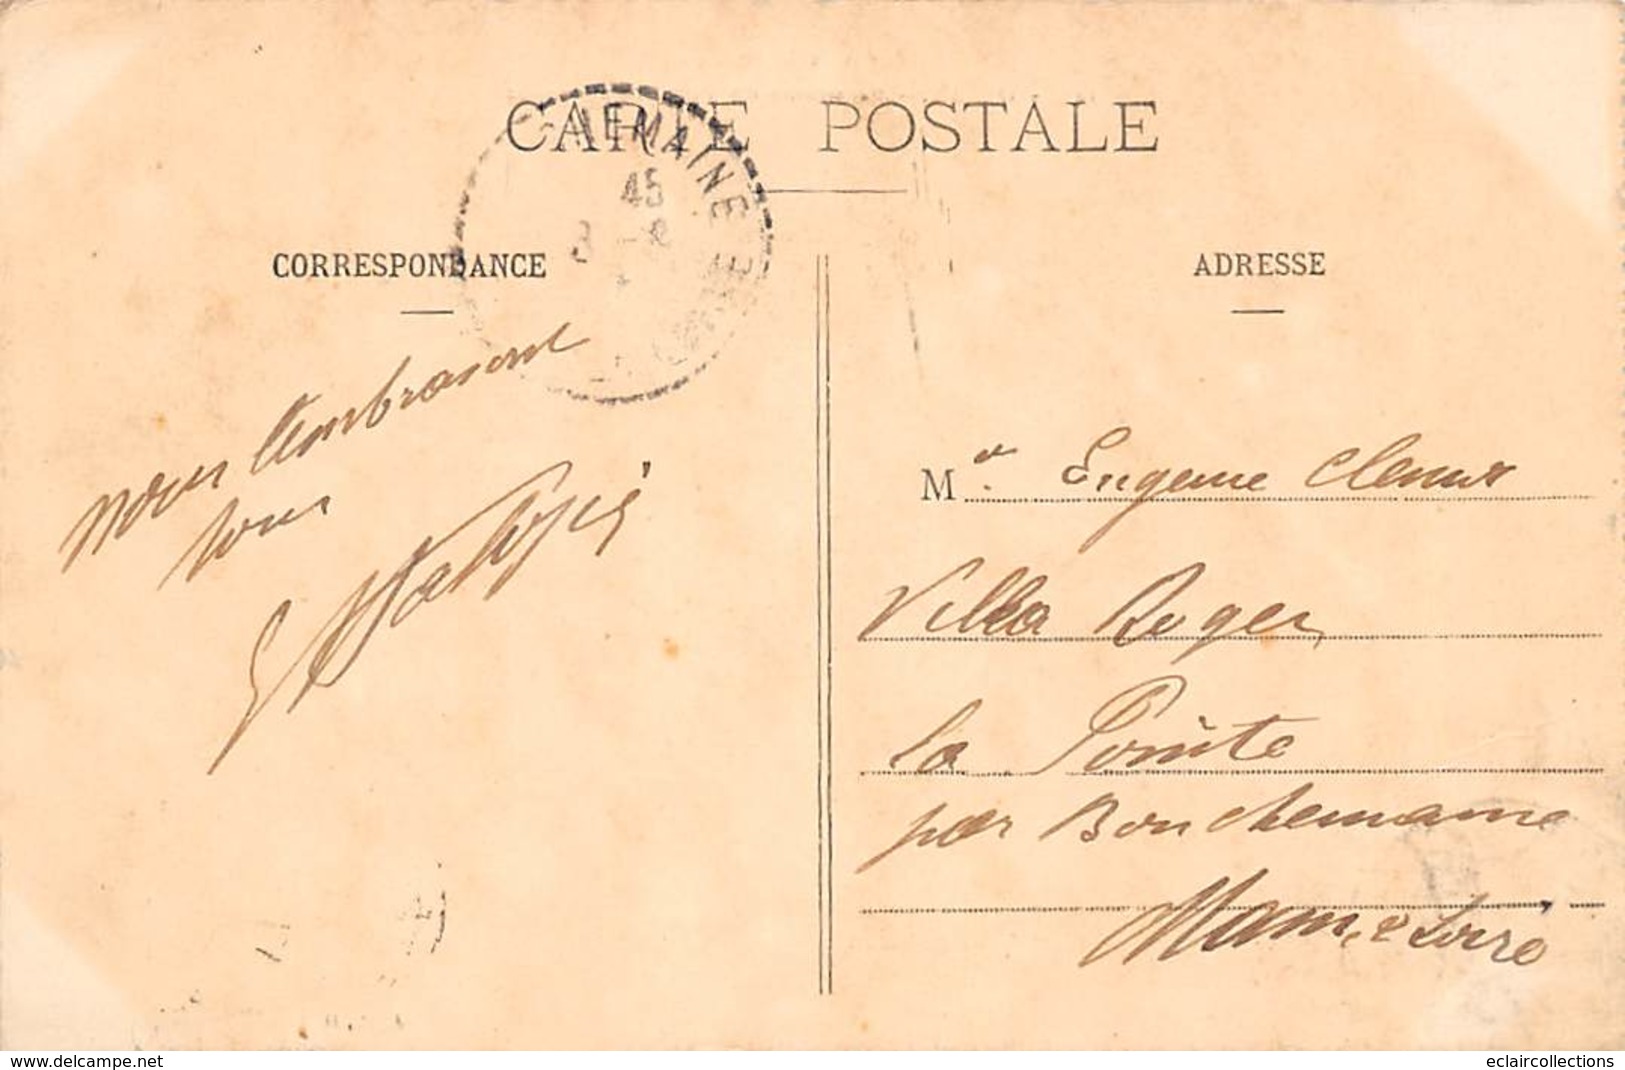 CARTE POSTALE
CORRESPONDANCE
ADRESSE
45
nous Embrasont
tous
Mr. Eugene
Villa Roger
la Pointe
par Bouchemaine
Maine & Loire
www.delcampe.net
eclaircollections